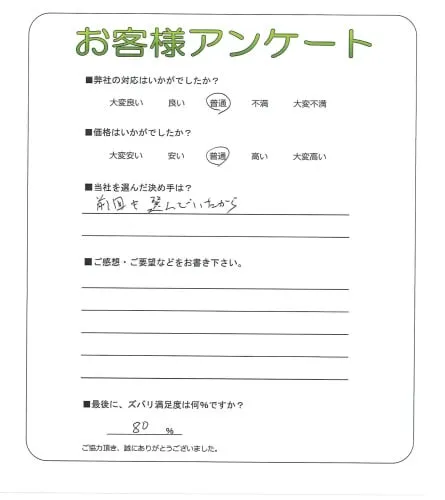 お客様アンケート
■弊社の対応はいかがでしたか?
大変良い 良い 普通 不満 大変不満
■価格はいかがでしたか?
大変安い 安い 普通 高い 大変高い
■当社を選んだ決め手は?
前回も選んでいたから
■ご感想・ご要望などをお書き下さい。
■最後に、ズバリ満足度は何%ですか?
80 %
ご協力頂き、誠にありがとうございました。